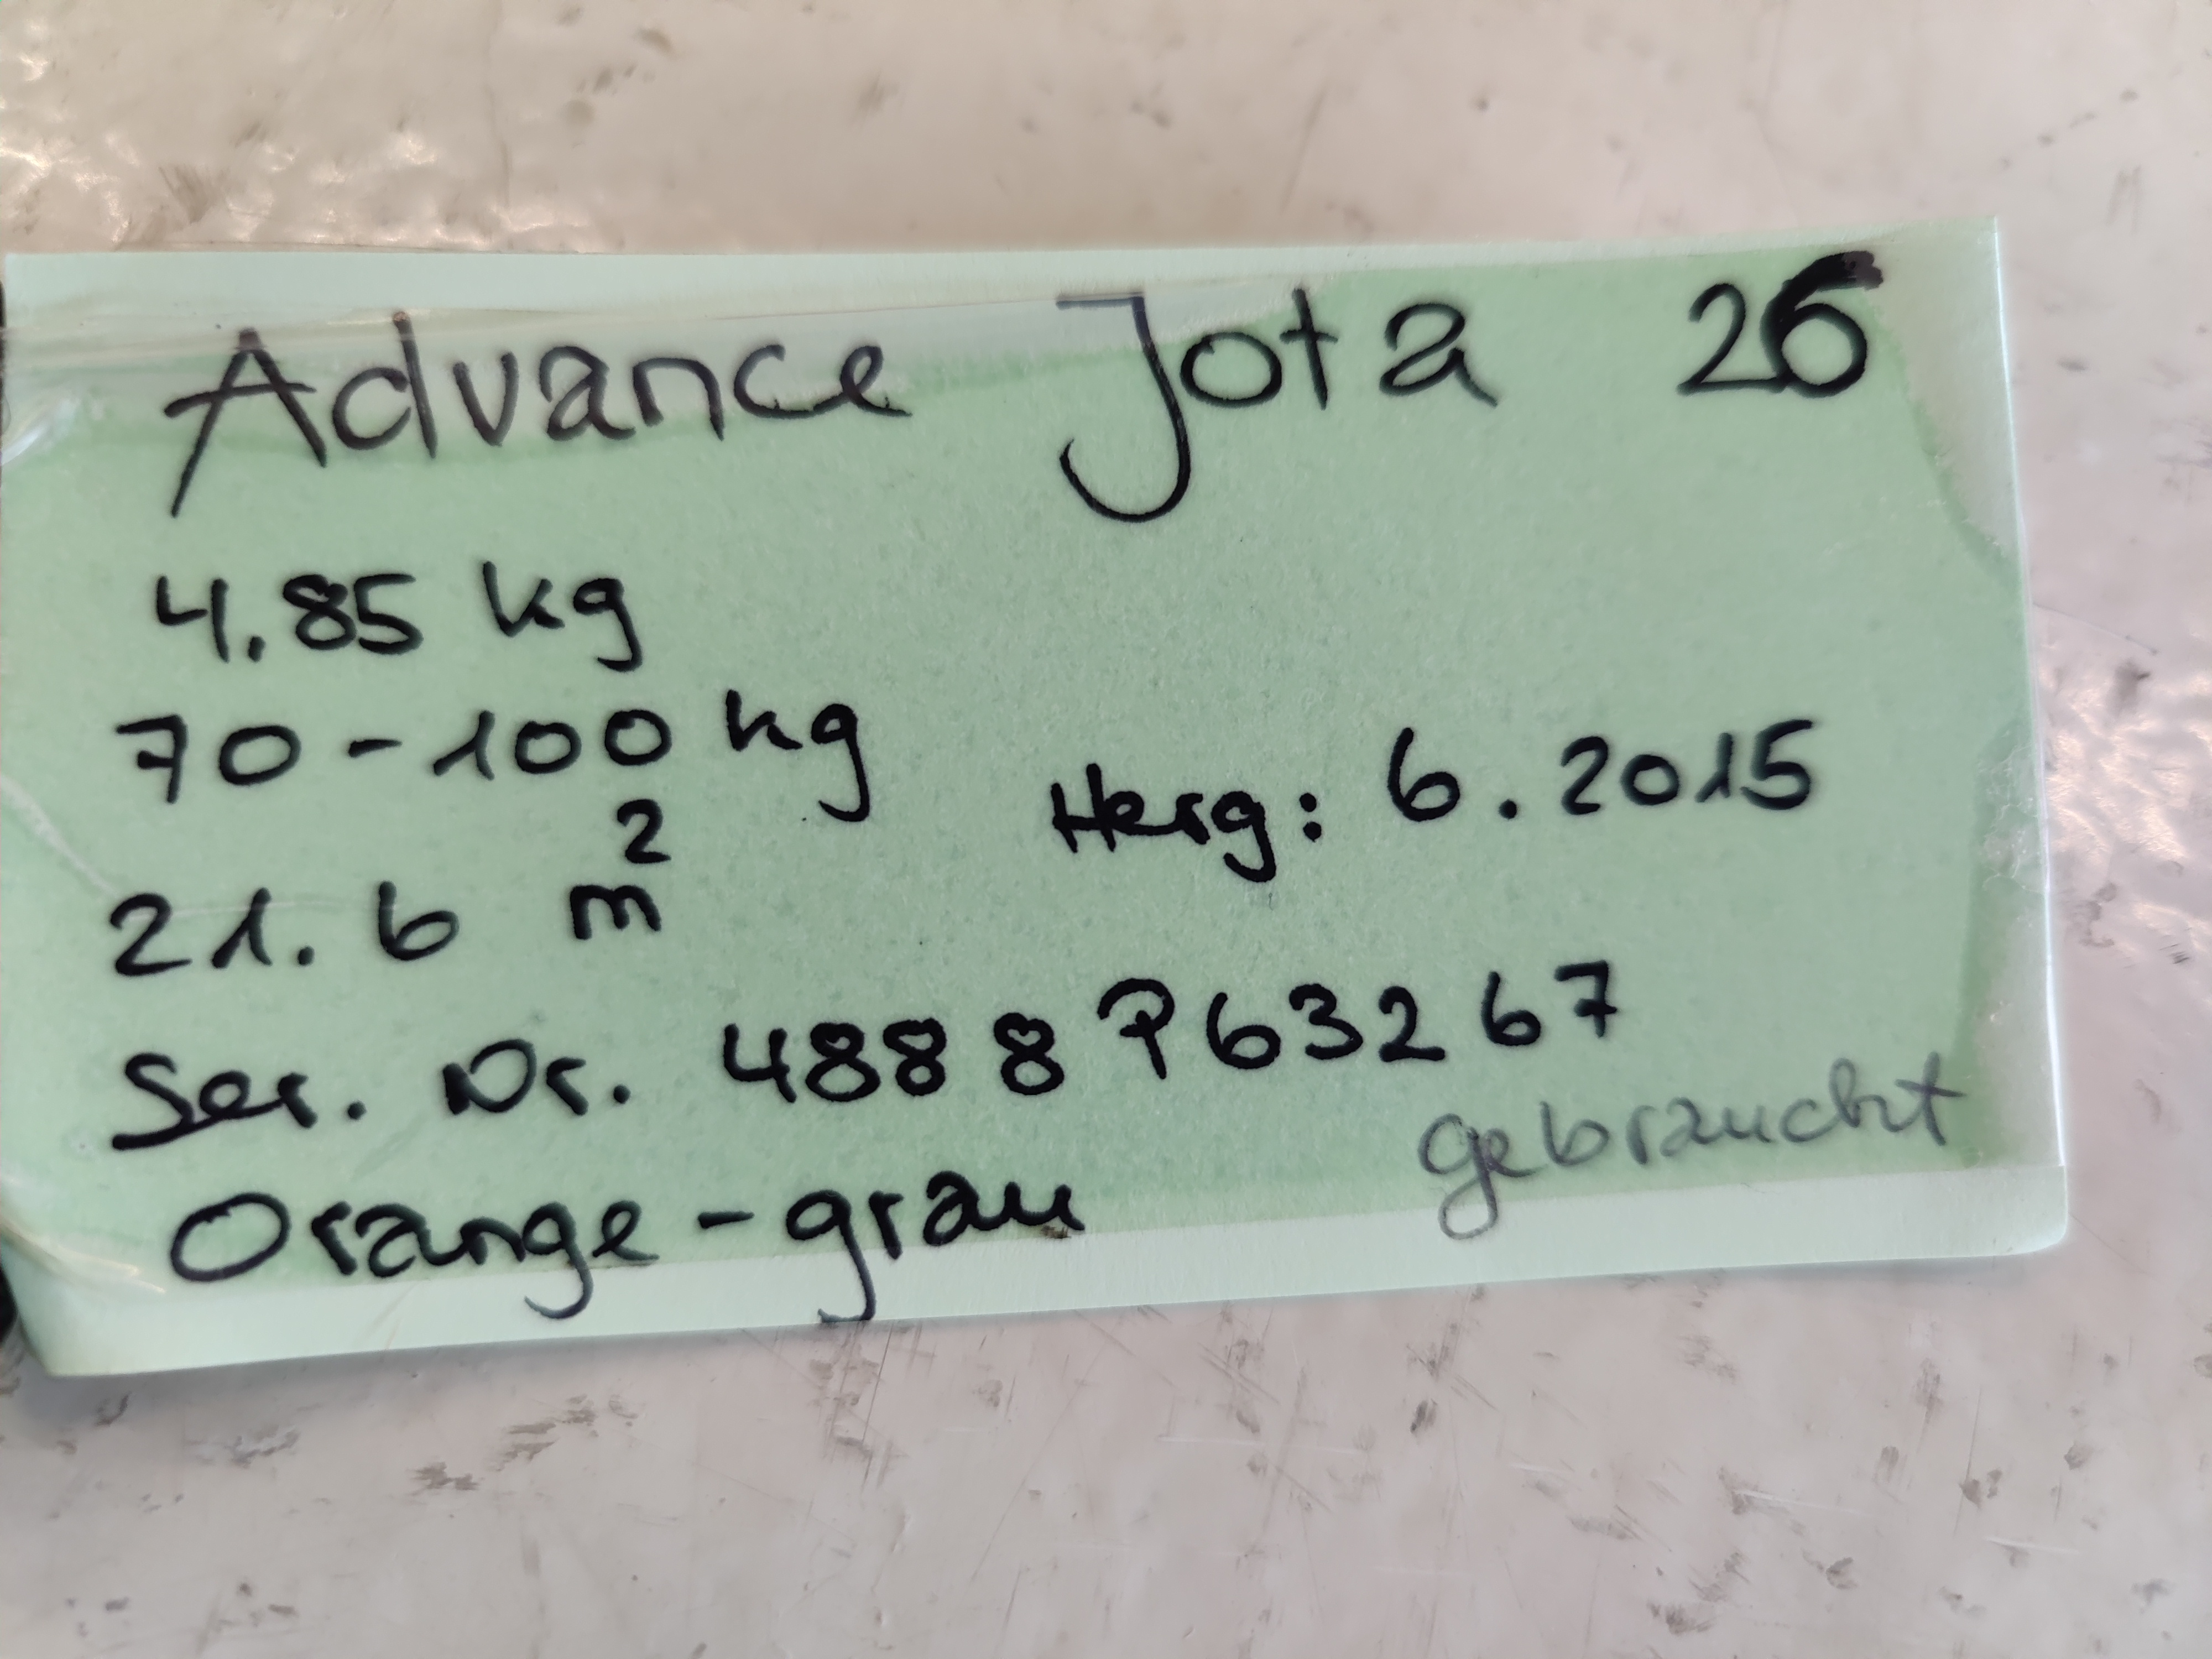 Advance Jota 26
4.85 kg
70-100 kg
Herg: 6.2015
21.6 m²
Ser. Nr. 4888P63267
gebraucht
Orange-grau